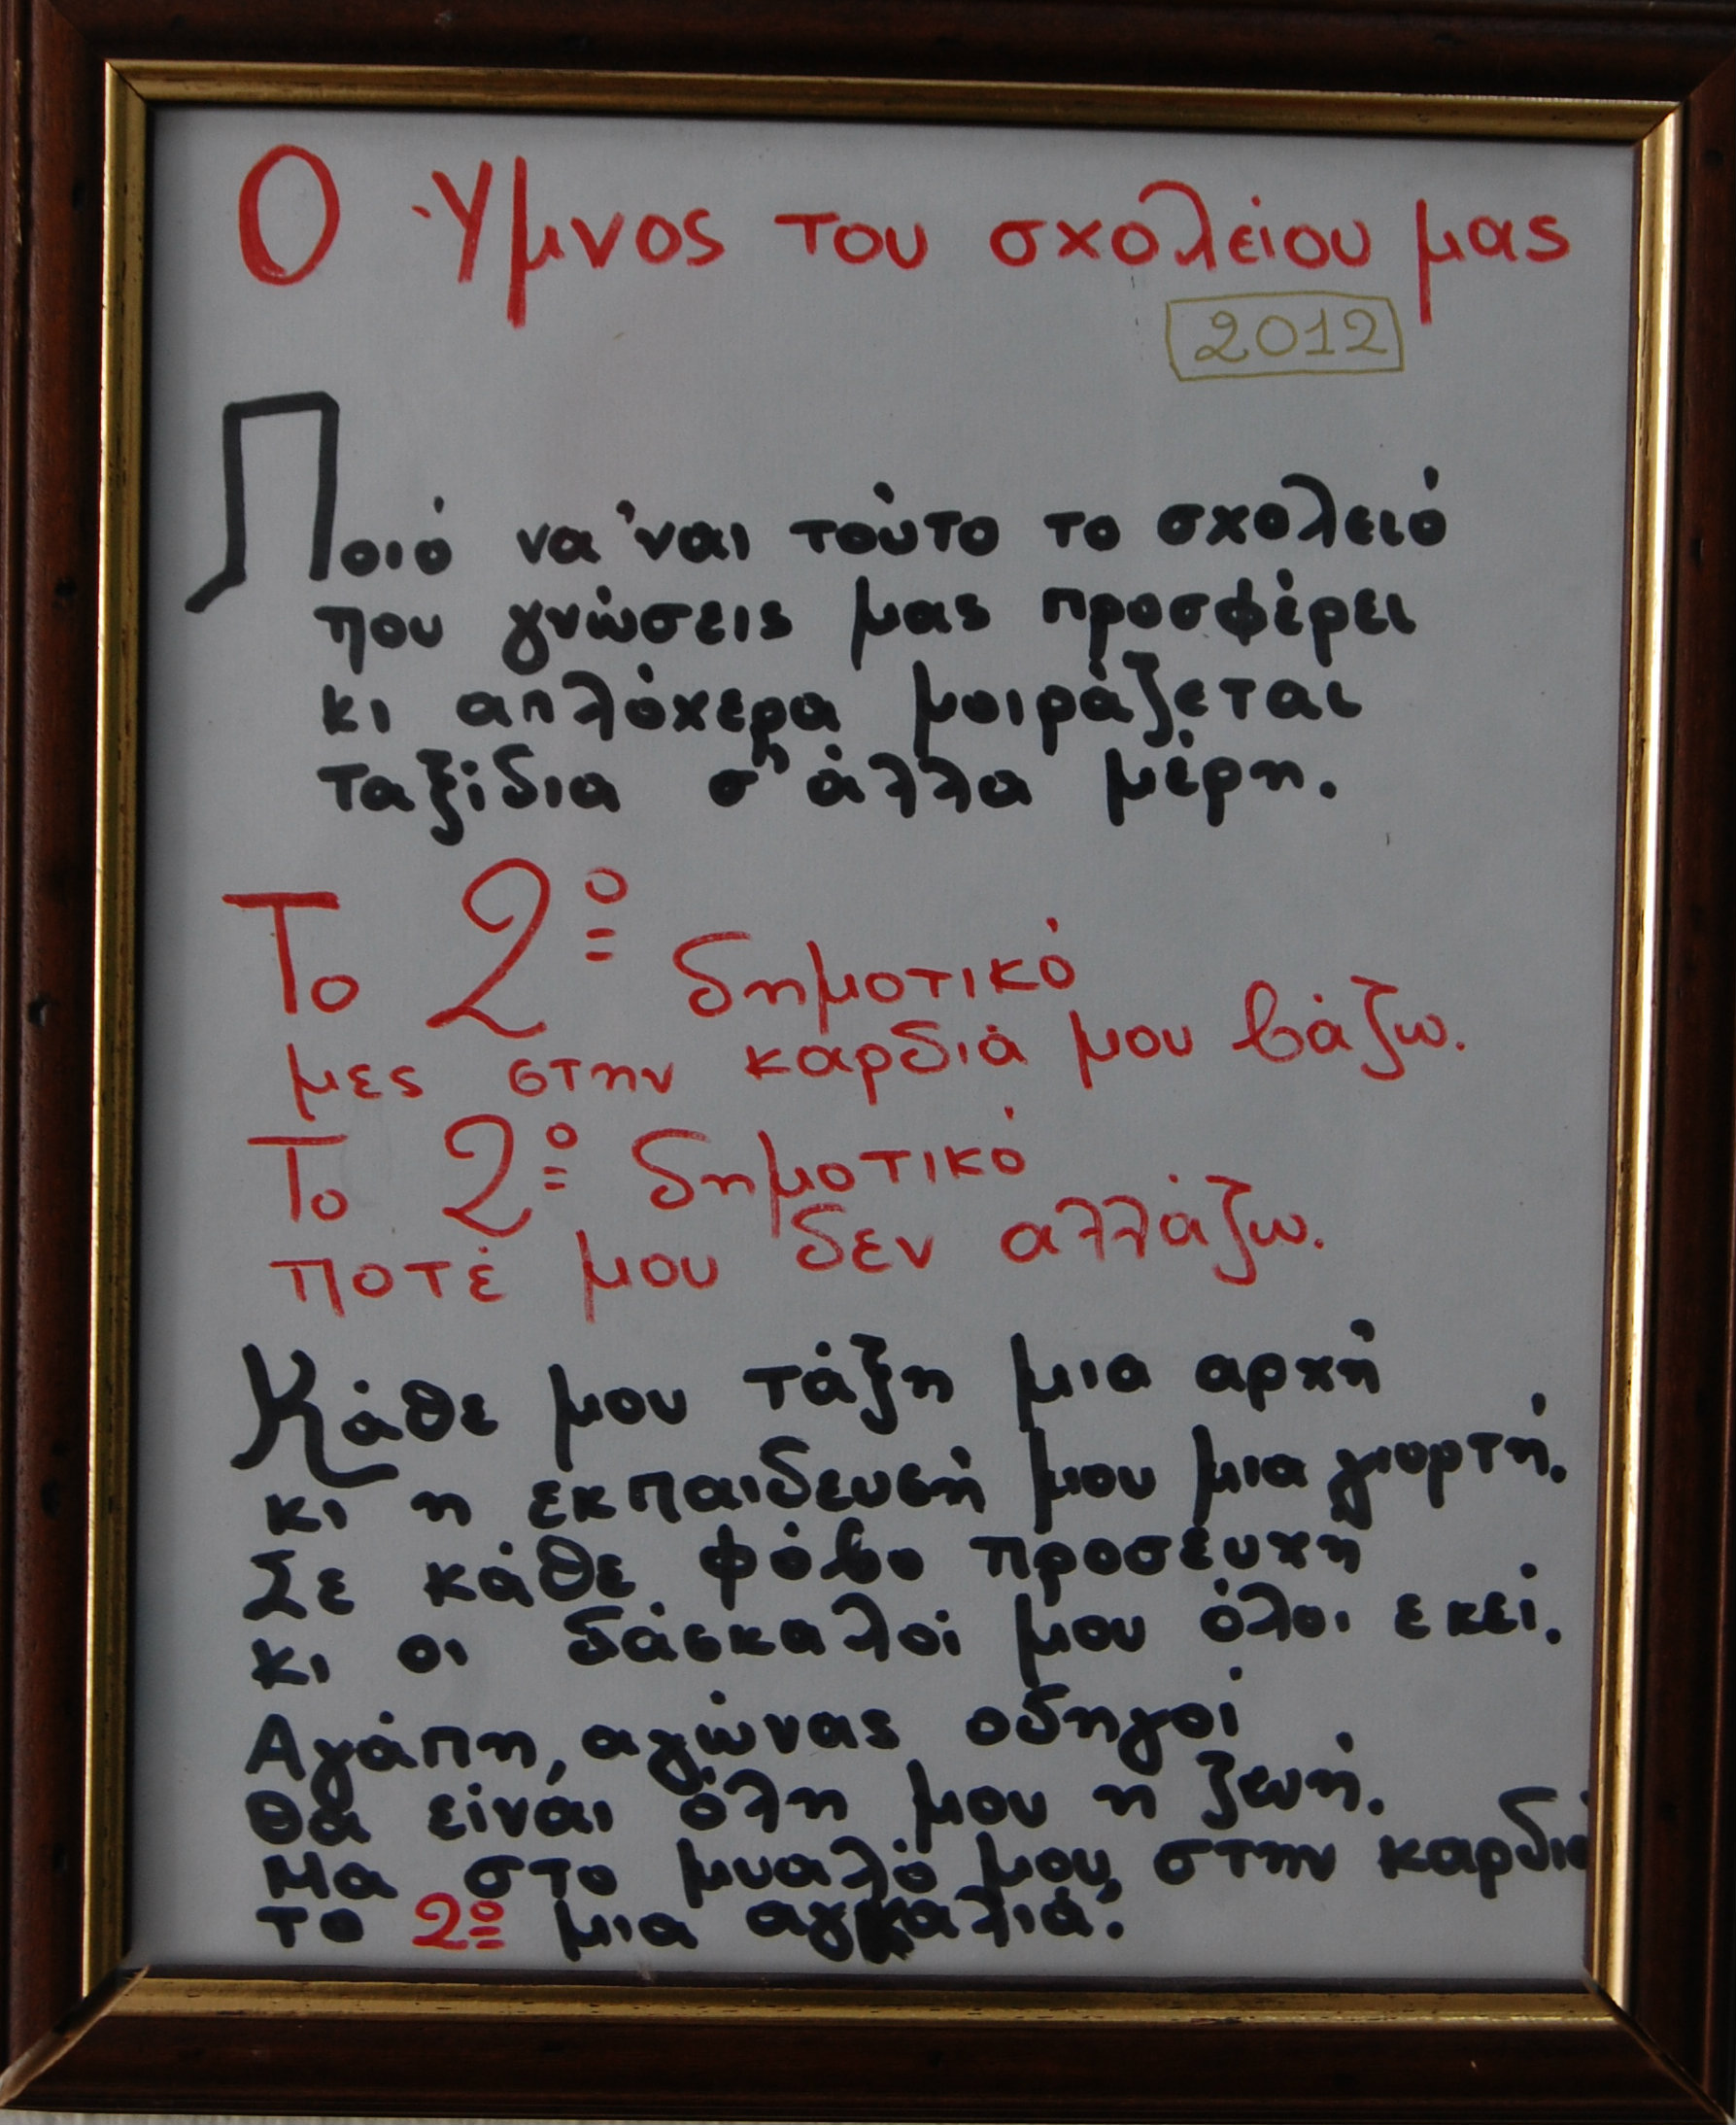 Ο Ύμνος του σχολείου μας
2012
Ποιό να 'ναι τούτο το σχολειό
που γνώσεις μας προσφέρει
κι απλόχερα μοιράζεται
ταξίδια σ' άλλα μέρη.
Το 2ο δημοτικό
μες στην καρδιά μου βάζω.
Το 2ο δημοτικό
ποτέ μου δεν αλλάζω.
Κάθε μου τάξη μια αρχή
κι η εκπαιδευσή μου μια γιορτή.
Σε κάθε φόβο προσευχή
κι οι δάσκαλοί μου όλοι εκεί.
Αγάπη, αγώνας οδηγοί
θα είναι όλη μου η ζωή.
Μα στο μυαλό μου, στην καρδιά
το 2ο μια αγκαλιά.